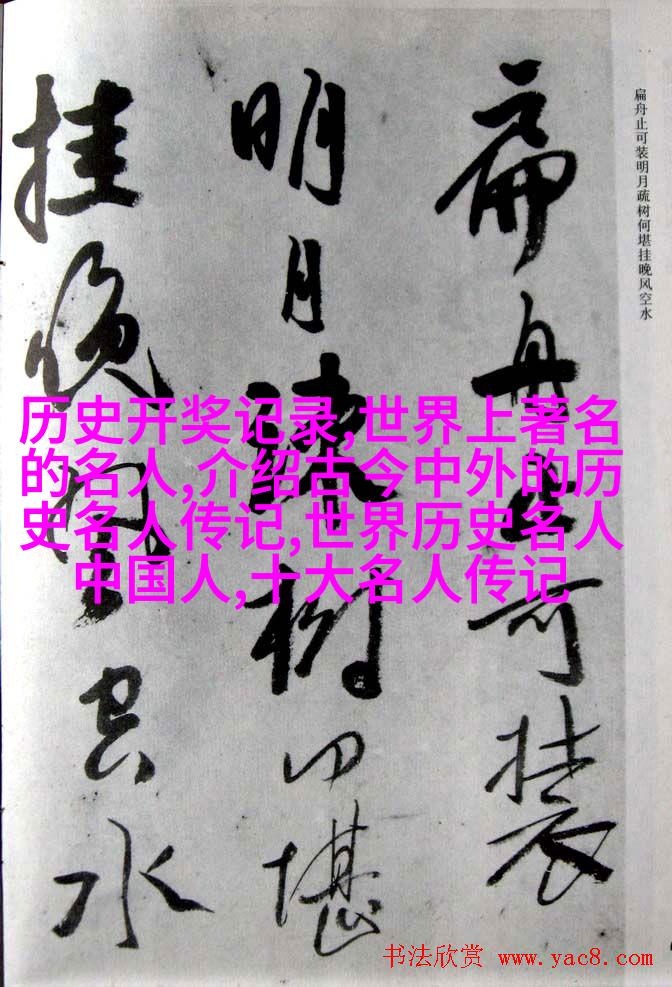 扁舟止可装
明月疏树何堪
挂晚風空水
扁舟止可装明月疏树何堪挂晚风空水
历史开奖记录,世界上著名
的名人,介绍古今中外的历
史名人传记,世界历史名人
中国人,十大名人传记
书法欣赏 www.yac8.com